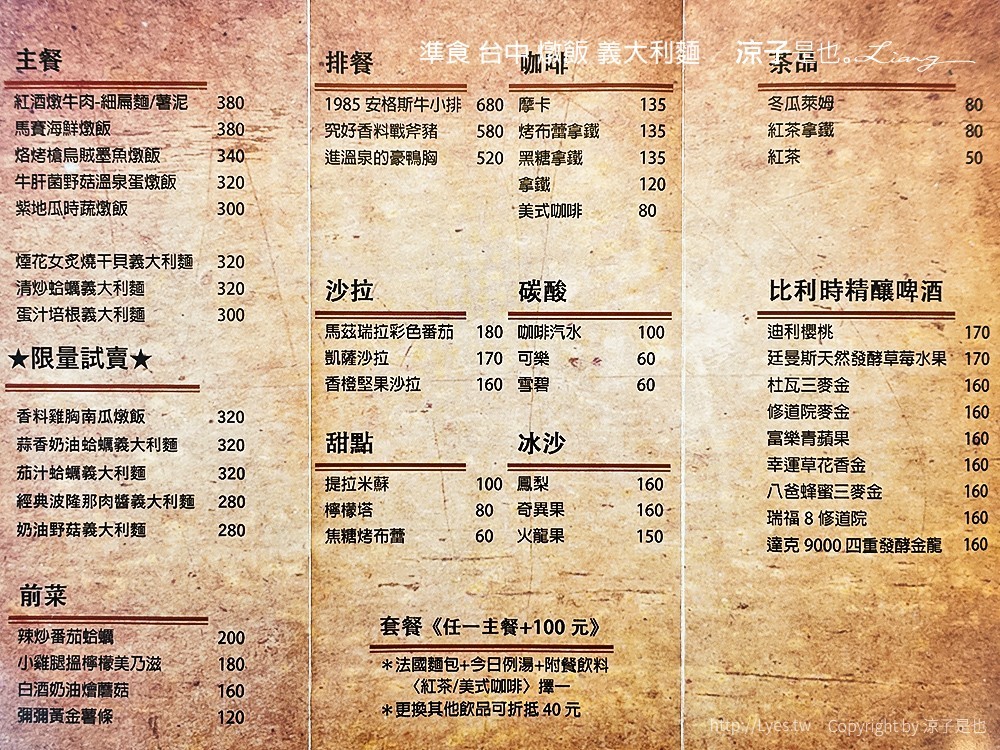 準食 台中 燉飯 義大利麵 涼子是也。Liang
主餐
紅酒燉牛肉-細扁麵/薯泥 380
馬賽海鮮燉飯 380
烙烤槍烏賊墨魚燉飯 340
牛肝菌野菇溫泉蛋燉飯 320
紫地瓜時蔬燉飯 300
煙花女炙燒干貝義大利麵 320
清炒蛤蠣義大利麵 320
蛋汁培根義大利麵 300
★限量試賣★
香料雞胸南瓜燉飯 320
蒜香奶油蛤蠣義大利麵 320
茄汁蛤蠣義大利麵 320
經典波隆那肉醬義大利麵 280
奶油野菇義大利麵 280
前菜
辣炒番茄蛤蠣 200
小雞腿搵檸檬美乃滋 180
白酒奶油燴蘑菇 160
彌彌黃金薯條 120
排餐
1985 安格斯牛小排 680
究好香料戰斧豬 580
進溫泉的豪鴨胸 520
沙拉
馬茲瑞拉彩色番茄 180
凱薩沙拉 170
香橙堅果沙拉 160
甜點
提拉米蘇 100
檸檬塔 80
焦糖烤布蕾 60
咖啡
摩卡 135
烤布蕾拿鐵 135
黑糖拿鐵 135
拿鐵 120
美式咖啡 80
碳酸
咖啡汽水 100
可樂 60
雪碧 60
冰沙
鳳梨 160
奇異果 160
火龍果 150
套餐《任一主餐+100 元》
＊法國麵包+今日例湯+附餐飲料
〈紅茶/美式咖啡〉擇一
＊更換其他飲品可折抵 40 元
茶品
冬瓜萊姆 80
紅茶拿鐵 80
紅茶 50
比利時精釀啤酒
迪利櫻桃 170
廷曼斯天然發酵草莓水果 170
杜瓦三麥金 160
修道院麥金 160
富樂青蘋果 160
幸運草花香金 160
八爸蜂蜜三麥金 160
瑞福 8 修道院 160
達克 9000 四重發酵金龍 160
http://Lyes.tw Copyright by 涼子是也